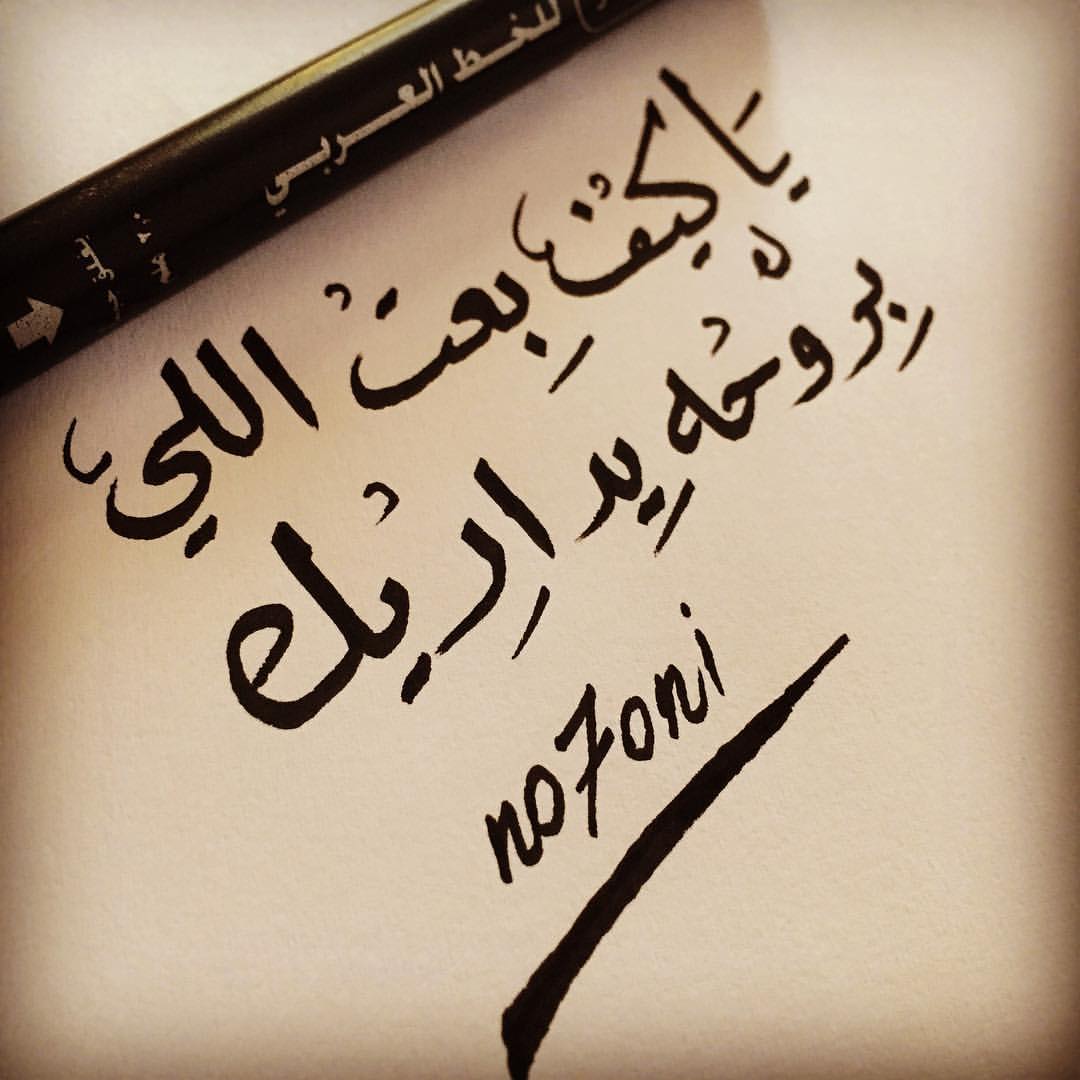 للخط العربي
يَا كيْف بِعتْ اللي
بِروْحْه يِداِريْك
no7oni